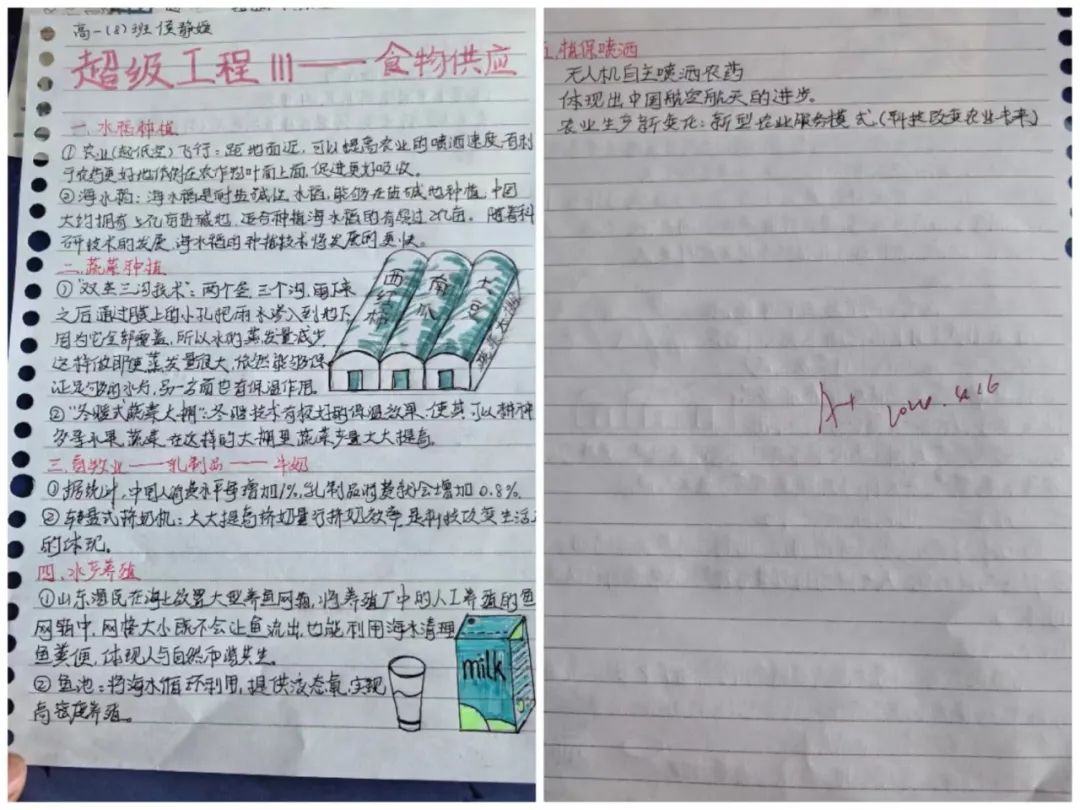 高一(8)班 侯静媛
超级工程III——食物供应
一.水稻种植
①农业(超低空)飞行：距地面近，可以提高农业的喷洒速度,有利
于农药更好地附在农作物叶面上面,促进更好吸收。
②海水稻：海水稻是耐盐碱性水稻，能够在盐碱地种植,中国
大约拥有5亿亩盐碱地，适合种植海水稻的有超过2亿亩。随着科
研技术的发展,海水稻的种植技术将发展的更快。
二.蔬菜种植
①"双垄三沟技术"：两个垄,三个沟,雨下来
之后通过膜上的小孔把雨水渗入到地下,
因为它全部覆盖,所以水的蒸发量减少
这样做即使蒸发量很大,依然能够保
证足够的水分,另一方面也有保温作用.
西红柿
南瓜
大豆
蔬菜大棚
②"冬暖式蔬菜大棚"：冬暖技术有极好的保温效果,使其可以耕种
多导水果,蔬菜.在这样的大棚里蔬菜产量大大提高.
三.畜牧业——乳制品——牛奶
①据统计,中国人消费水平每增加1%,乳制品消费就会增加0.8%.
②转盘式挤奶机：大大提高挤奶量与挤奶效率,是科技改变生活
的体现。
四.水产养殖
①山东渔民在海上放置大型养鱼网箱,将养殖厂中的人工养殖的鱼
网箱中,网格大小既不会让鱼流出,也能利用海水清理
鱼粪便,体现人与自然和谐共生。
②鱼池：将海水循环利用,提供液态氧,实现
高密度养殖。
milk
五.植保喷洒
无人机自主喷洒农药
体现出中国航空航天的进步.
农业生产新变化：新型农业服务模式.(科技改变农业未来)
A+